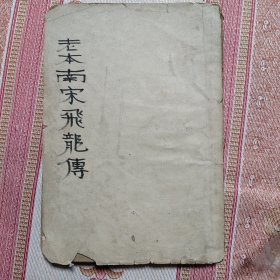 老本南宋飛龍傳